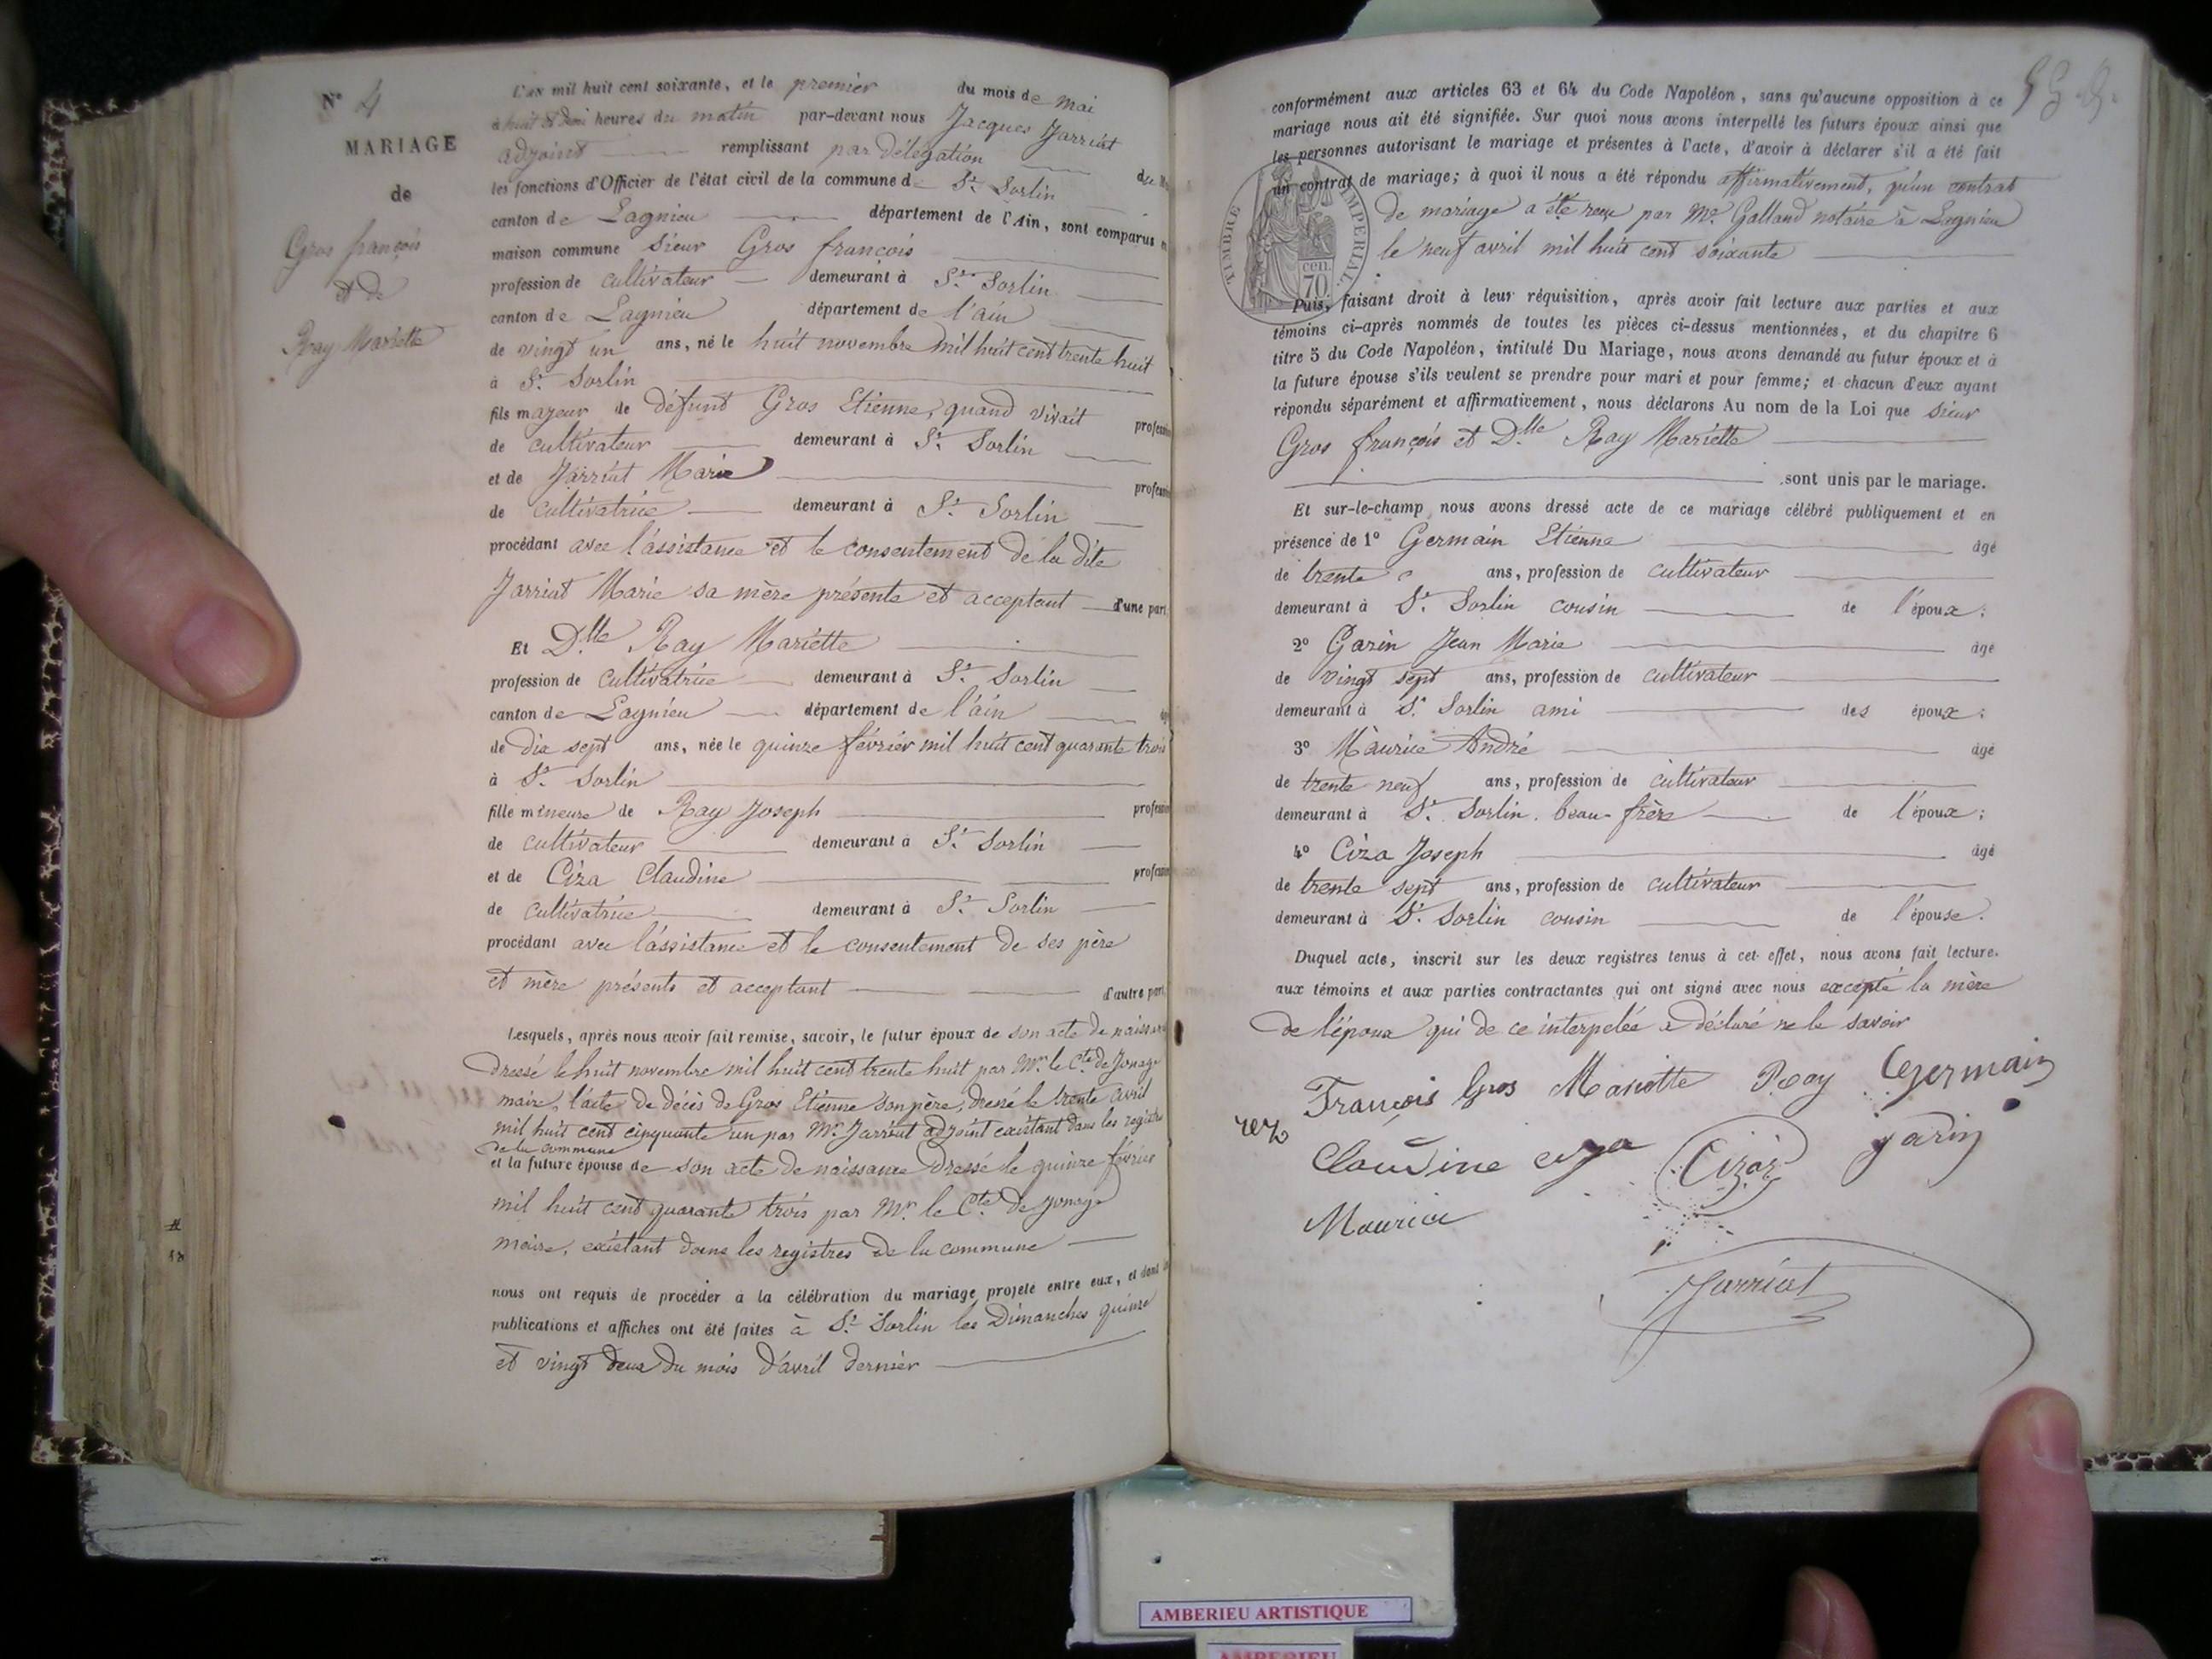 N° 4
MARIAGE
de
Gros françois
et de
Ray Mariette
L'an mil huit cent soixante, et le premier du mois de mai
à huit et demi heures du matin par-devant nous Jacques Jarriat
adjoint remplissant par délégation
les fonctions d'Officier de l'état civil de la commune de St. Sorlin
canton de Lagnieu département de l'Ain, sont comparus
maison commune sieur Gros françois
profession de cultivateur demeurant à St. Sorlin
canton de Lagnieu département de l'ain
de vingt un ans, né le huit novembre mil huit cent trente huit
à St. Sorlin
fils majeur de défunt Gros Etienne, quand vivait
de cultivateur demeurant à St. Sorlin
et de Jarriat Marie
de cultivatrice demeurant à St. Sorlin
procédant avec l'assistance et le consentement de la dite
Jarriat Marie sa mère présente et acceptant d'une part
Et Dlle Ray Mariette
profession de cultivatrice demeurant à St. Sorlin
canton de Lagnieu département de l'ain
de dix sept ans, née le quinze février mil huit cent quarante trois
à St. Sorlin
fille mineure de Ray Joseph
de cultivateur demeurant à St. Sorlin
et de Ciza Claudine
de cultivatrice demeurant à St. Sorlin
procédant avec l'assistance et le consentement de ses père
et mère présents et acceptant d'autre part,
Lesquels, après nous avoir fait remise, savoir, le futur époux de son acte de
dressé le huit novembre mil huit cent trente huit par Mr. le Cte. de Jonage
maire, l'acte de décès de Gros Etienne son père, dressé le trente avril
mil huit cent cinquante un par Mr. Jarriat adjoint existant dans les registres
de la commune
et la future épouse de son acte de naissance dressé le quinze février
mil huit cent quarante trois par Mr. le Cte. de Jonage
maire, existant dans les registres de la commune
nous ont requis de procéder à la célébration du mariage projeté entre eux, et dont
publications et affiches ont été faites à St. Sorlin les Dimanches quinze
et vingt deux du mois d'avril dernier
conformément aux articles 63 et 64 du Code Napoléon, sans qu'aucune opposition à ce
mariage nous ait été signifiée. Sur quoi nous avons interpellé les futurs époux ainsi que
les personnes autorisant le mariage et présentes à l'acte, d'avoir à déclarer s'il a été fait
un contrat de mariage; à quoi il nous a été répondu affirmativement, qu'un contrat
de mariage a été reçu par Me. Galland notaire à Lagnieu
le neuf avril mil huit cent soixante
TIMBRE IMPERIAL
cen.
70
Puis, faisant droit à leur réquisition, après avoir fait lecture aux parties et aux
témoins ci-après nommés de toutes les pièces ci-dessus mentionnées, et du chapitre 6
titre 5 du Code Napoléon, intitulé Du Mariage, nous avons demandé au futur époux et à
la future épouse s'ils veulent se prendre pour mari et pour femme; et chacun d'eux ayant
répondu séparément et affirmativement, nous déclarons Au nom de la Loi que sieur
Gros françois et Dlle Ray Mariette
sont unis par le mariage.
Et sur-le-champ nous avons dressé acte de ce mariage célébré publiquement et en
présence de 1° Germain Etienne âgé
de trente ans, profession de cultivateur
demeurant à St. Sorlin cousin de l'époux;
2° Garin Jean Marie âgé
de vingt sept ans, profession de cultivateur
demeurant à St. Sorlin ami des époux;
3° Maurice André âgé
de trente neuf ans, profession de cultivateur
demeurant à St. Sorlin. beau-frère de l'époux;
4° Ciza Joseph âgé
de trente sept ans, profession de cultivateur
demeurant à St. Sorlin cousin de l'épouse.
Duquel acte, inscrit sur les deux registres tenus à cet effet, nous avons fait lecture.
aux témoins et aux parties contractantes qui ont signé avec nous excepté la mère
de l'époux qui de ce interpelée a déclaré ne le savoir
François Gros Mariette Ray Germain
rey
Claudine ciza Ciza garin
Maurice
Jarriat
AMBERIEU ARTISTIQUE
AMBERIEU